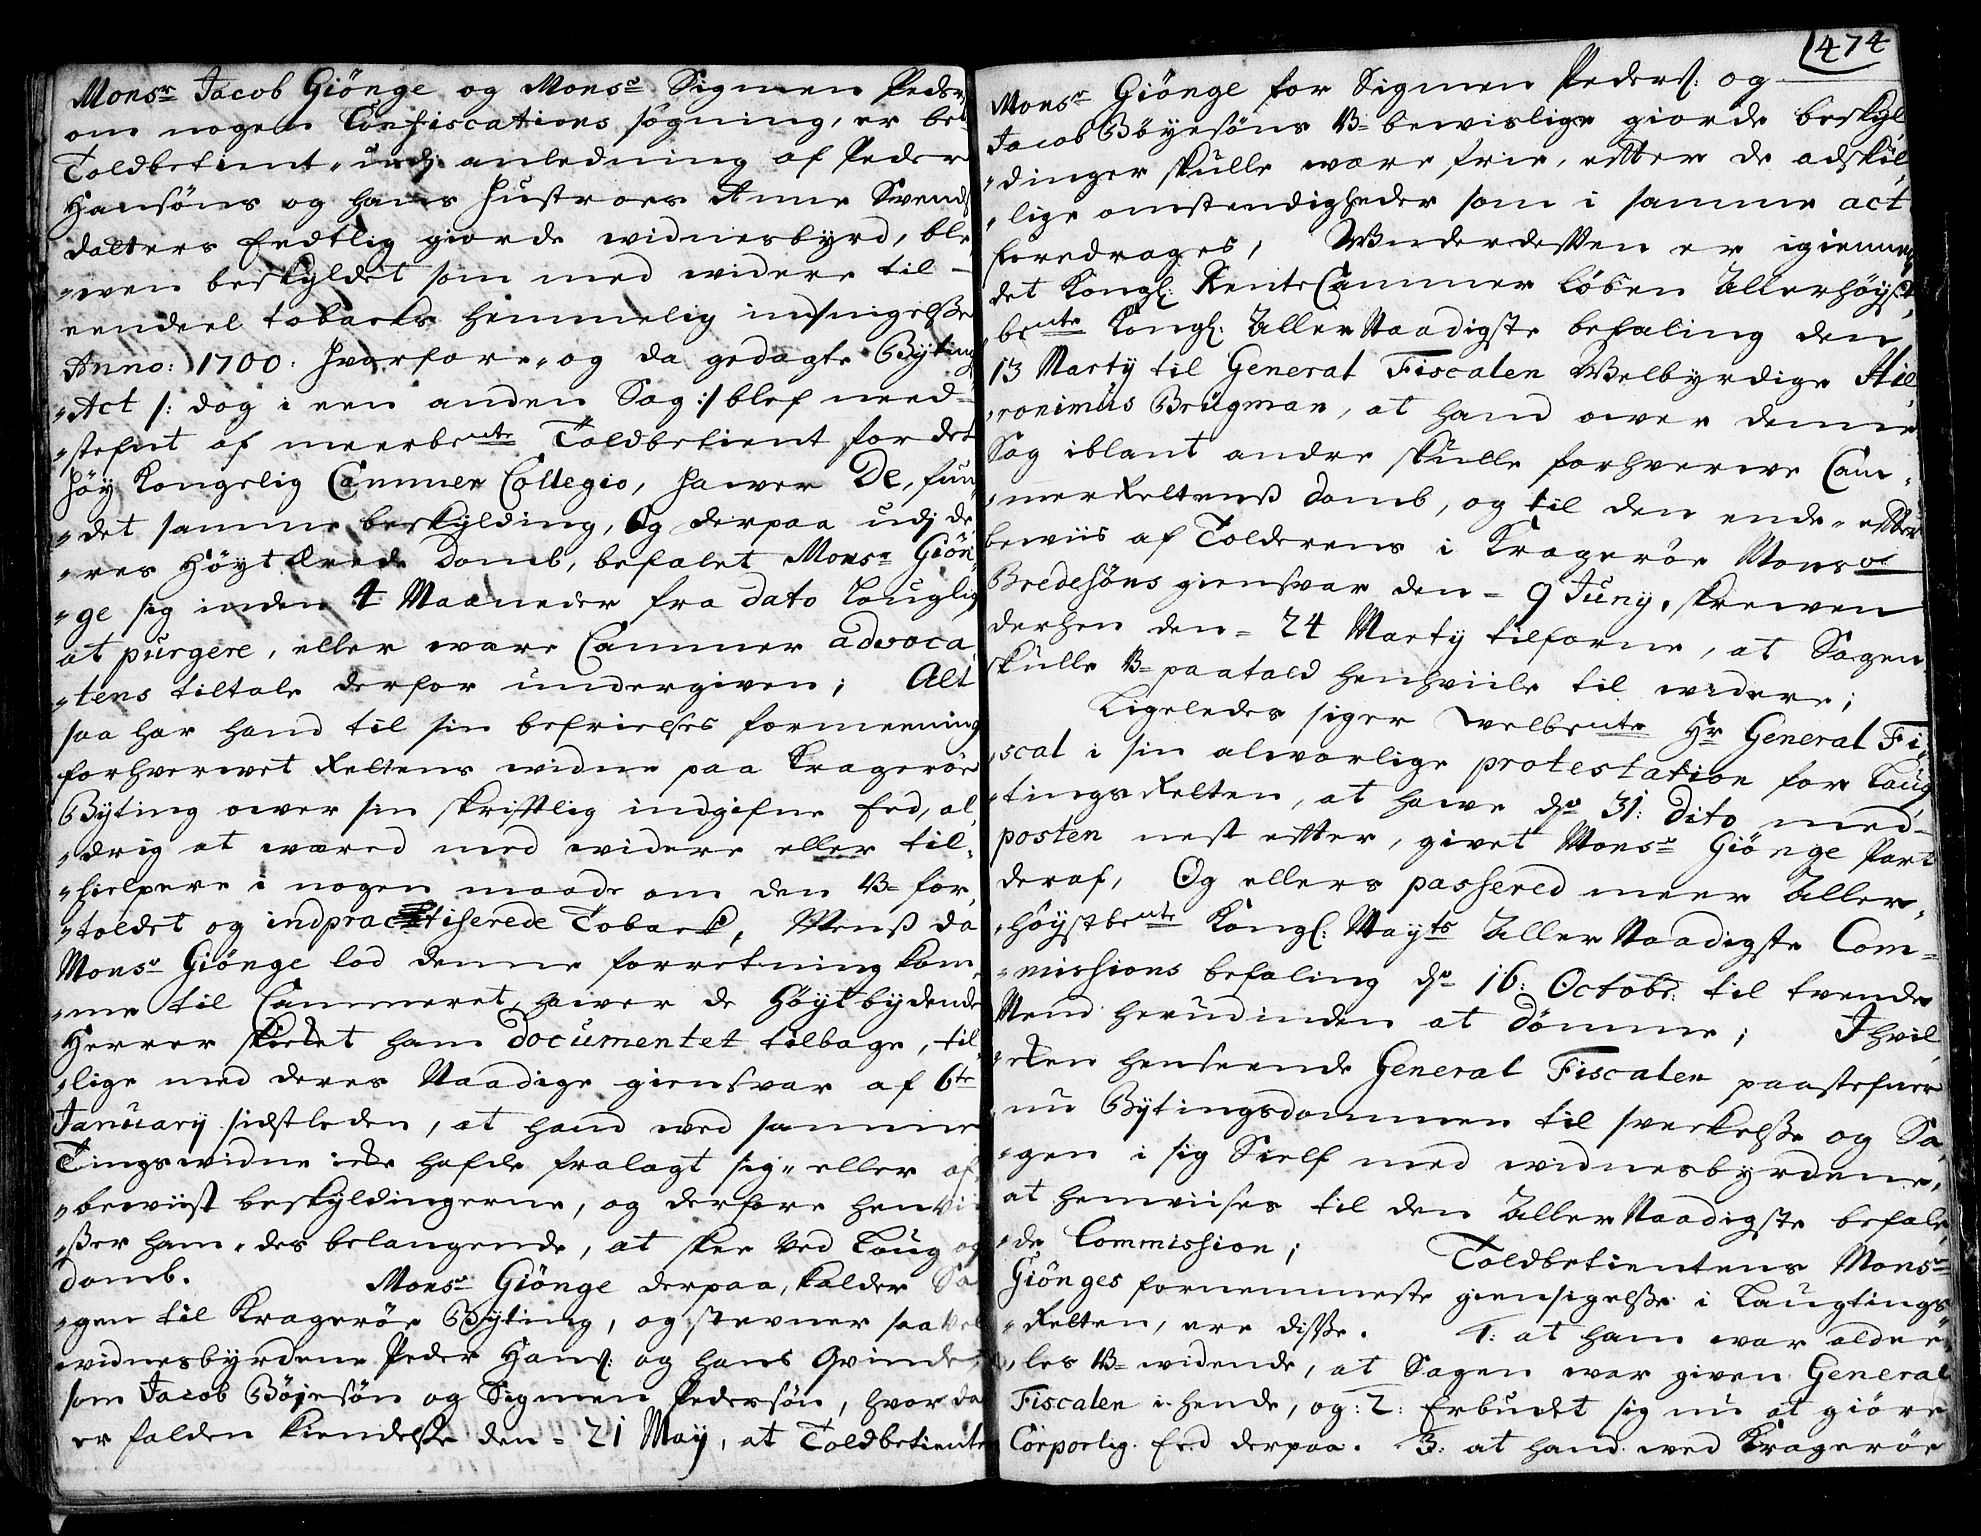 Monsr Jacob Giönge og Monsr Sigmen Peders:
om nogen Confiscations søgning, er bete
Toldbetient, udj anledning af Peder
Hansöns og hans Hustroes Anne Svends
datters Eedtlig giorde widnesbyrd, ble-
„wen beskyldet som med widere til-
eendeel tobacks hemmelig indsnigelsse
Anno: 1700. hvorfore, og da gedagte Byting
„Act /: dog i een anden Sag :/ blef need-
„stefnt af meerbemte Toldbetient for det
höy Kongelig Cammer Collegio, hawer De, fun-
„det samme beskylding, Og derpaa udj de-
„res Höytærede Domb, befalet Monsr Giön-
„ge sig inden 4 Maaneder fra dato Louglig
at purgere, eller ware Cammer advoca-
„tens tiltale derfor undergiven; Alt
saa har hand til sin befrielses formeening
forhverwet Rettens widne paa Kragerøe
Byting ower sin skrifftlig indgifne Eed, al-
„drig at wæred med widere eller til-
„hielpere i nogen maade om den U= for-
„toldet og indpractiserede Toback, Menss da
Monsr Giönge lod denne forretning kom-
„me til Cammeret, hawer de Höytbydende
Herrer skicket ham Documentet tilbage, til-
„lige med deres Naadige giensvar af 6te
January sidstleden, at hand med samme
Tingswidne icke hafde fralagt sig, eller af-
„bewiist beskyldingerne, og derfore henwii-
„sser ham, des belangende, at skee ved Loug og
domb. Monsr Giönge derpaa, kalder Sa-
„gen til Kragerøe Byting, og stevner saavel
widnesbyrdene Peder Hans: og hans Qvinde,
som Jacob Böjesön og Sigmen Pedersön, hvor da
er falden kiendelsse den = 21 May, at Toldbetiente
474
Monsr Giönge for Sigmen Peders: og
Jacob Böyesöns U= bewislige giorde beskyl
„dinger skulle ware frie, effter de adskil-
„lige omstendigheder som i samme act
foredrages, Wnderdessen er igiennem
det Kongl: RenteCammer löben Allerhöyst
bemte Kongl: AllerNaadigste befaling den
13 Marty til General Fiscalen Welbyrdige Hie-
„ronimus Brügman, at hand ower denne
Sag iblant andre skulle forhverwe Cam-
„merRettenss domb, og til den ende, effter
bewiis af Tolderens i Kragerøe Monsr
Bredesöns giensvar den = 9 Juny, skrewen
derhen den = 24 Marty tilforne, at Sagen
skulle U= paatald henhviile til widere;
Ligeledes siger welbemte Hr General Fi-
„scal i sin alvorlige protestation for Laug-
„tingsRetten, at hawe dn 31: Dito med-
posten nest effter, givet Monsr Giönge Part
deraf, Og ellers passered meer Aller-
„höystbemte Kongl: Mayts AllerNaadigste Com-
„missions befaling dn 16: Octobr: til tvende
Mend herudinden at dömme; I hvil-
„cken henseende General Fiscalen paastefner
nu Bytingsdommen til sveckelsse og Sa-
„gen i sig Sielf med widnesbyrdene,
at henwiises til den AllerNaadigste befale-
„de Commission; Toldbetientens Monsr
Giönges fornemmeste giensigelsse i Laugtings-
„Retten, ere disse. 1: at ham war aldee-
„les U= widende, at Sagen war given General
Fiscalen i hende, og: 2: Erbudet sig nu at giöre
Corporlig Eed derpaa. 3: at hand wed Kragerøe